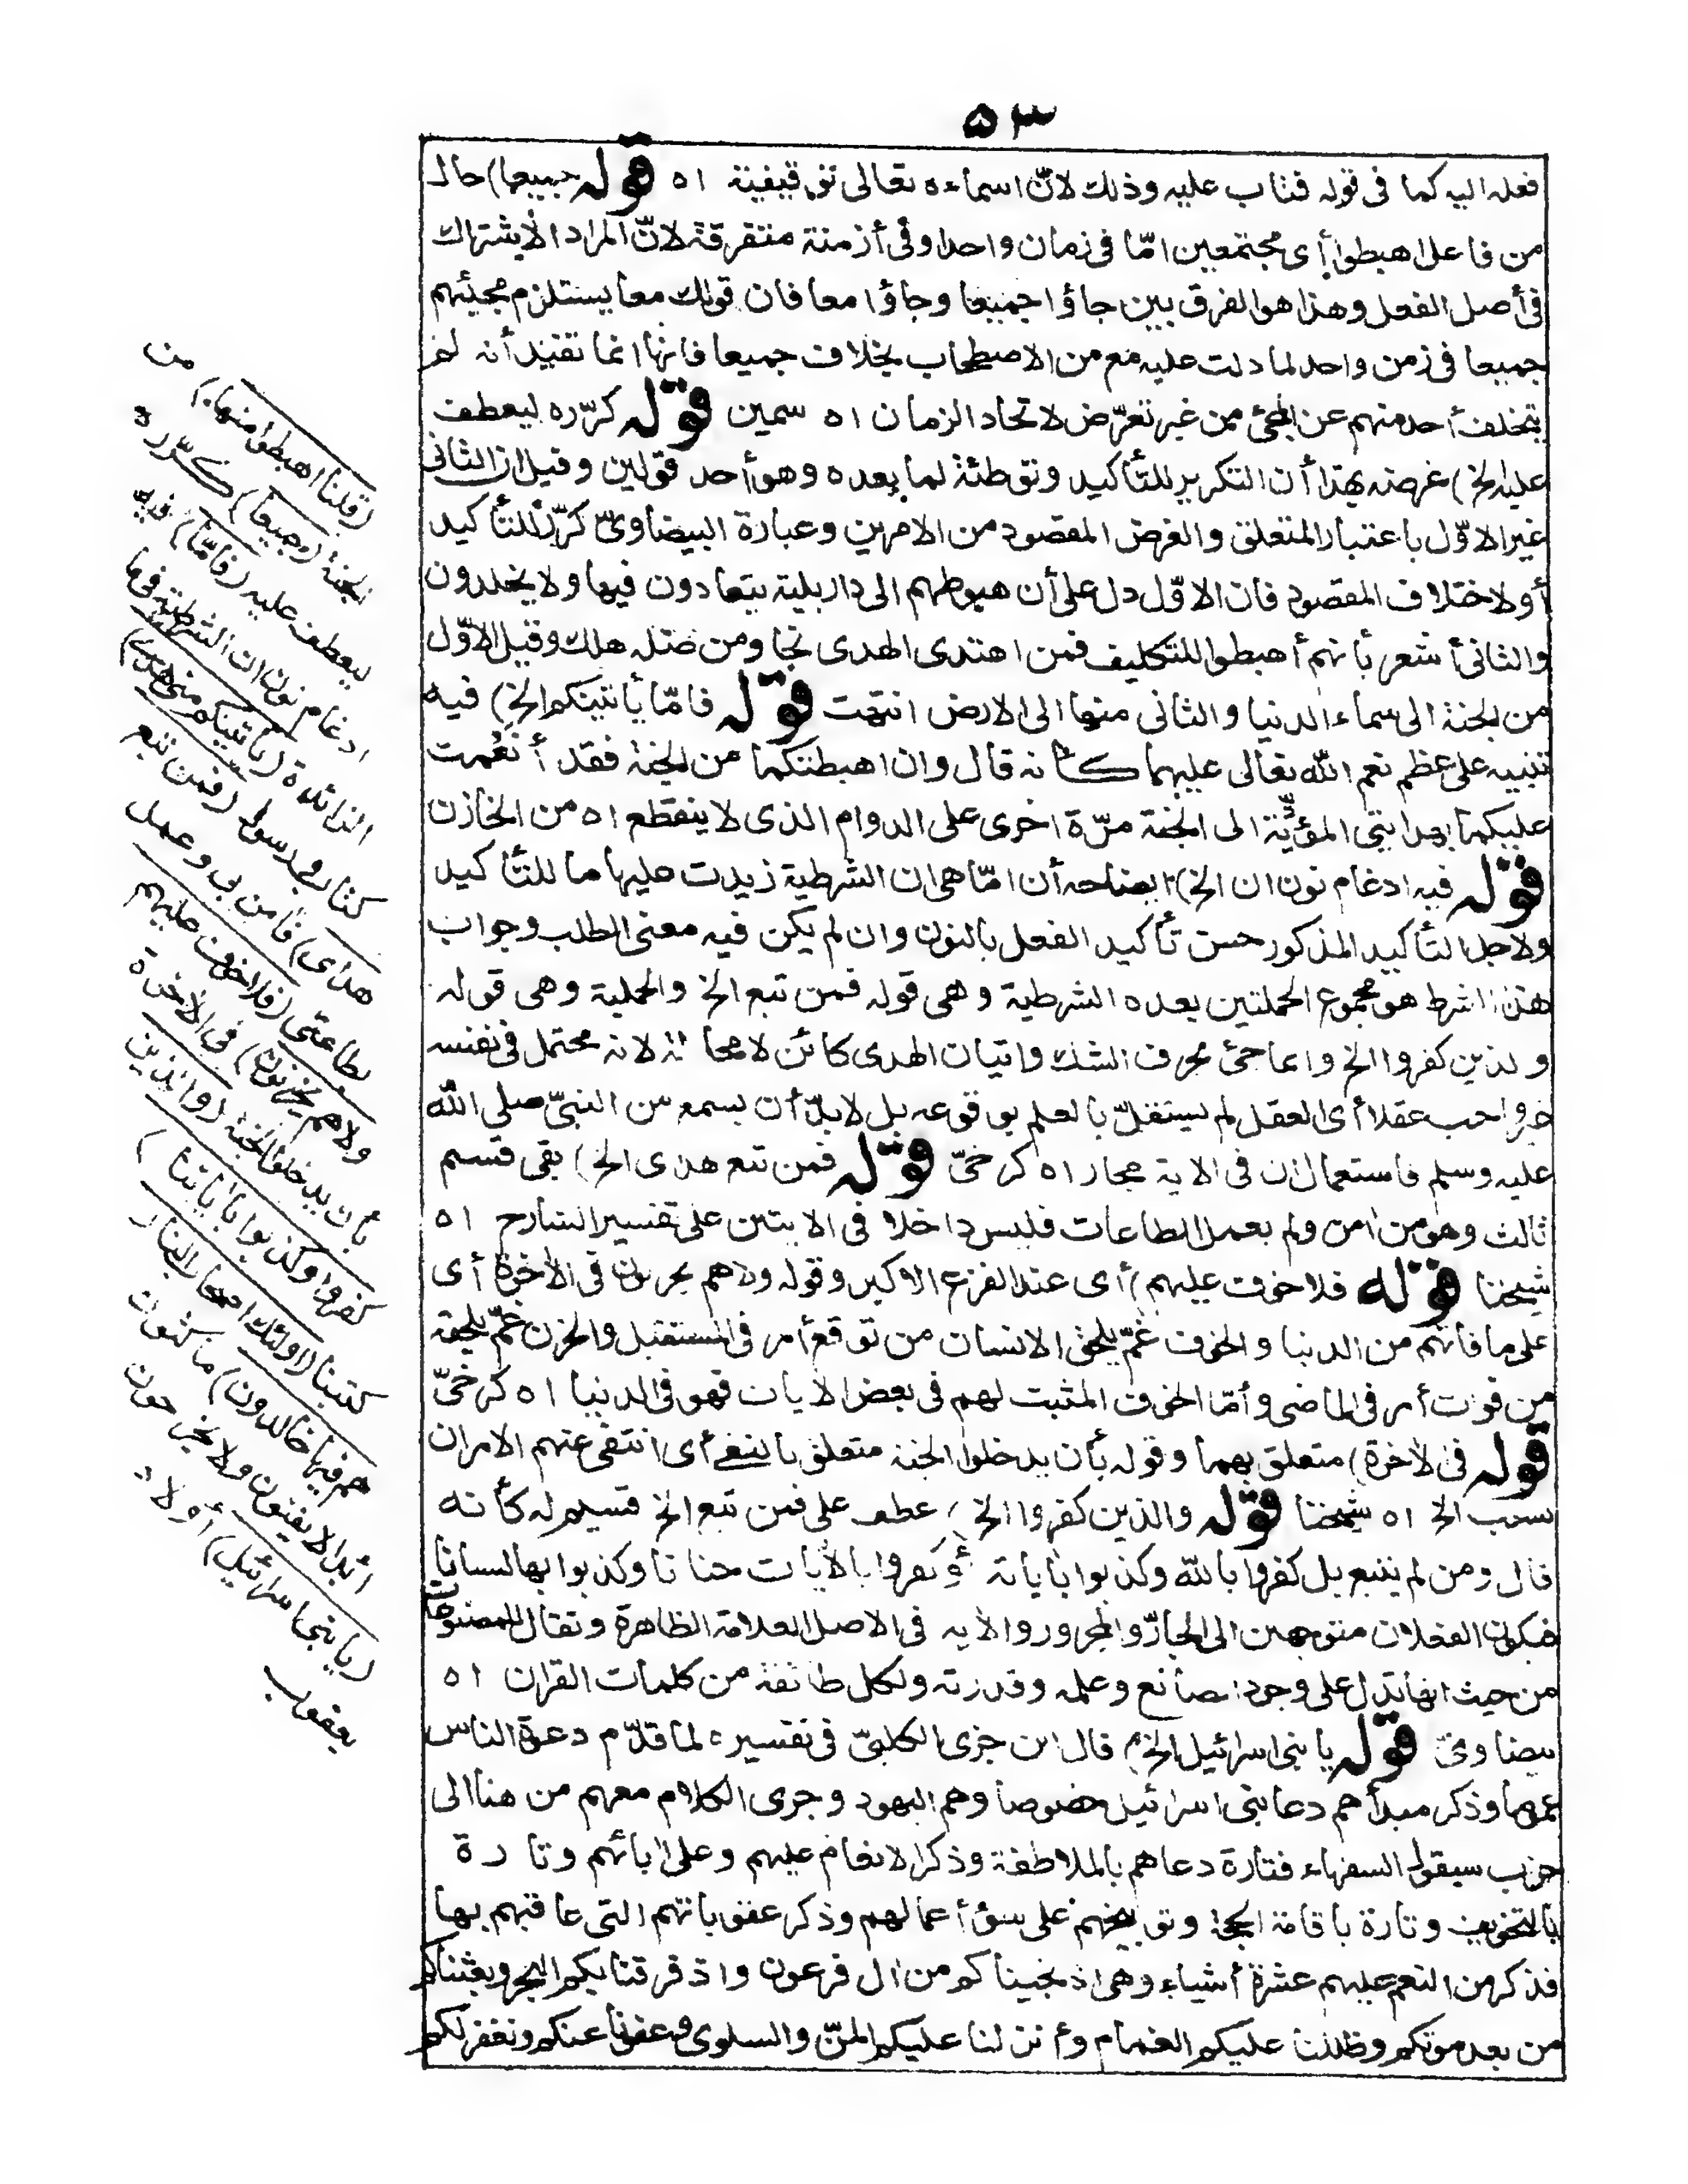 ٥٣
فعله اليه كما فى قوله فتاب عليه وذلك لانّ اسماءه تعالى توقيفية اه قوله جميعا) حال
من فاعل اهبطوا أى مجتمعين امّا فى زمان واحد او فى أزمنة متفرقة لانّ المراد الاشتراك
فى أصل الفعل وهذا هو الفرق بين جاؤا جميعا وجاؤا معا فان قولك معا يستلزم مجيئهم
جميعا فى زمن واحد لما دلت عليه مع من الاصطحاب بخلاف جميعا فانها انما تفيد أنه لم
يتخلف أحد منهم عن المجئ من غير تعرّض لاتحاد الزمان اه سمين قوله كرّره ليعطف
عليه الخ) غرضه بهذا أن التكرير للتأكيد وتوطئة لما بعده وهو أحد قولين وقيل ان الثانى
غير الاوّل باعتبار المتعلق والغرض المقصود من الامرين وعبارة البيضاوىّ كرّر للتأكيد
أولاختلاف المقصود فان الاوّل دل على أن هبوطهم الى دار بلية يتعادون فيها ولا يخلدون
والثانى أشعر بأنهم أهبطوا للتكليف فمن اهتدى الهدى نجا ومن ضله هلك وقيل الاوّل
من الجنة الى سماء الدنيا والثانى منها الى الارض انتهت قوله فامّا يأتينكم الخ) فيه
تنبيه على عظم نعم الله تعالى عليهما كأنه قال وان اهبطتكما من الجنة فقد أنعمت
عليكما بهدايتى المؤدّية الى الجنة مرّة اخرى على الدوام الذى لا ينقطع اه من الخازن
قوله فيه ادغام نون ان الخ) ايضاحه أن امّا هى ان الشرطية زيدت عليها ما للتأكيد
ولاجل التأكيد المذكور حسن تأكيد الفعل بالنون وان لم يكن فيه معنى الطلب وجواب
هذا الشرط هو مجموع الجملتين بعده الشرطية وهى قوله فمن تبع الخ والجملية وهى قوله
والذين كفروا الخ وانما جئ بحرف الشك واتيان الهدى كائن لا محالة لانه محتمل فى نفسه
غير واجب عقلا أى العقل لم يستقلّ بالعلم بوقوعه بل لابدّ أن يسمع من النبىّ صلى الله
عليه وسلم فاستعمال ان فى الاية مجاز اه كرخىّ قوله فمن تبع هداى الخ) بقى قسم
ثالث وهو من اٰمن ولم يعمل الطاعات فليس داخلا فى الايتين على تفسير الشارح اه
شيخنا قوله فلا خوف عليهم) أى عند الفزع الاكبر وقوله ولاهم يحزنون فى الاٰخرة أى
على ما فاتهم من الدنيا والخوف غمّ يلحق الانسان من توقع أمر فى المستقبل والحزن غمّ يلحقه
من فوت أمر فى الماضى وأمّا الخوف المثبت لهم فى بعض الايات فهو فى الدنيا اه كرخىّ
قوله فى الاٰخرة) متعلق بهما وقوله بأن يدخلوا الجنة متعلق بالنفى أى انتفى عنهم الامران
بسبب الخ اه شيخنا قوله والذين كفروا الخ) عطف على فمن تبع الخ قسيم له كأنه
قال ومن لم يتبع بل كفروا بالله وكذبوا باٰياته أو كفروا بالاٰيات جنانا وكذبوا بها لسانا
فيكون الفعلان متوجهين الى الجارّ والمجرور والاٰية فى الاصل العلامة الظاهرة وتقال للمصنوعات
من حيث انها تدل على وجود الصانع وعلمه وقدرته ولكل طائفة من كلمات القران اه
بيضاوىّ قوله يا بنى اسرائيل الخ) قال ابن جزى الكلبىّ فى تفسيره لما قدّم دعوة الناس
عموما وذكر مبدأهم دعا بنى اسرائيل خصوصا وهم اليهود وجرى الكلام معهم من هنا الى
حزب سيقول السفهاء فتارة دعاهم بالملاطفة وذكر الانعام عليهم وعلى اٰبائهم وتارة
بالتخويف وتارة باقامة الحجة وتوبيخهم على سوء أعمالهم وذكر عقوباتهم التى عاقبهم بها
فذكر من النعم عليهم عشرة أشياء وهى اذ نجيناكم من اٰل فرعون واذ فرقنا بكم البحر وبعثناكم
من بعد موتكم وظللنا عليكم الغمام وأنزلنا عليكم المنّ والسلوى وعفونا عنكم ونغفر لكم
(قلنا اهبطوا منها) من
الجنة (جميعا) كرّره
ليعطف عليه (فامّا) فيه
ادغام نون ان الشرطية فى ما
الزائدة (يأتينكم منى هدى)
كتاب ورسول (فمن تبع
هداى) فاٰمن بى وعمل
بطاعتى (فلا خوف عليهم
ولاهم يحزنون) فى الاٰخرة
بأن يدخلوا الجنة (والذين
كفروا وكذبوا باٰياتنا)
كتبنا (اولئك اصحاب النار
هم فيها خالدون) ماكثون
ابدا لا يفنون ولا يخرجون
(يا بنى اسرائيل) أولاد
يعقوب